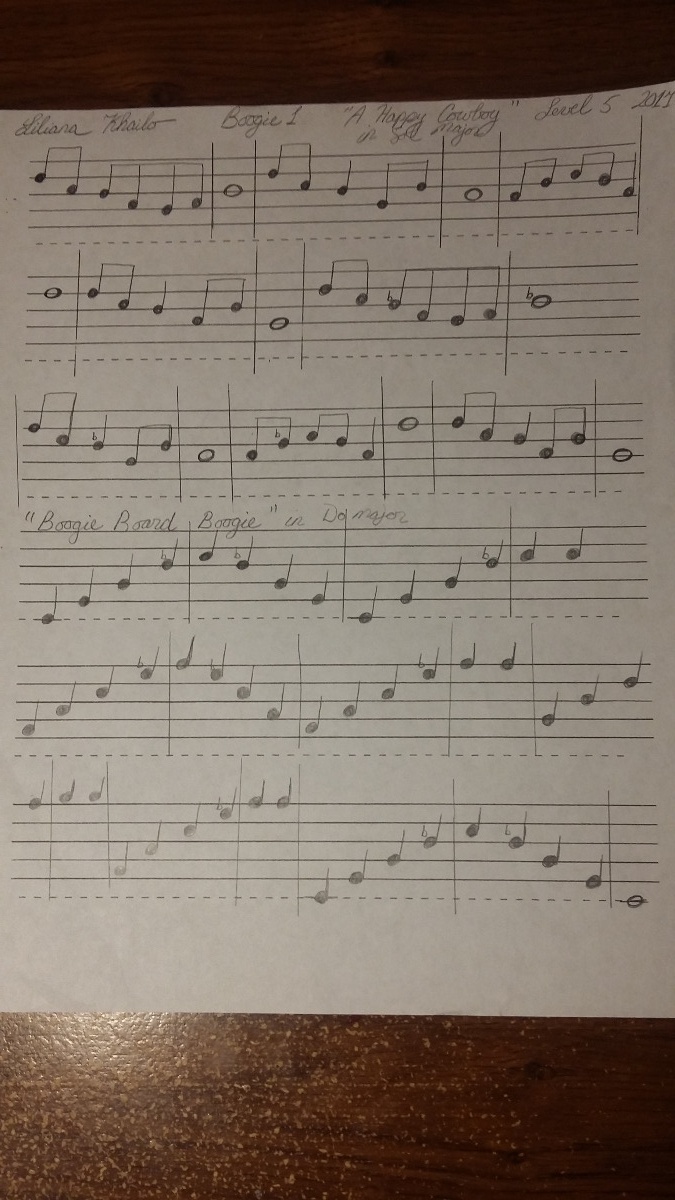 Liliana Khailo Boogie 1 "A Happy Cowboy" Level 5 2017
in Sol major
"Boogie Board Boogie" in Do major